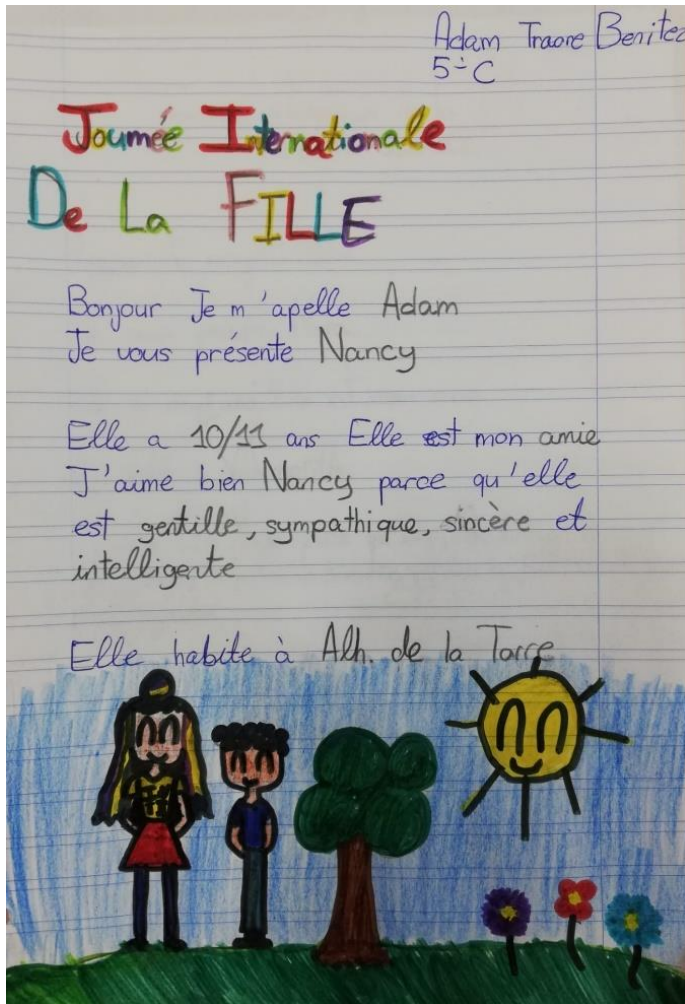 Adam Traore Benitez
5-C
Journée Internationale
De La FILLE
Bonjour Je m'apelle Adam
Je vous présente Nancy
Elle a 10/11 ans Elle est mon amie
J'aime bien Nancy parce qu'elle
est gentille, sympathique, sincère et
intelligente
Elle habite à Alh. de la Torre